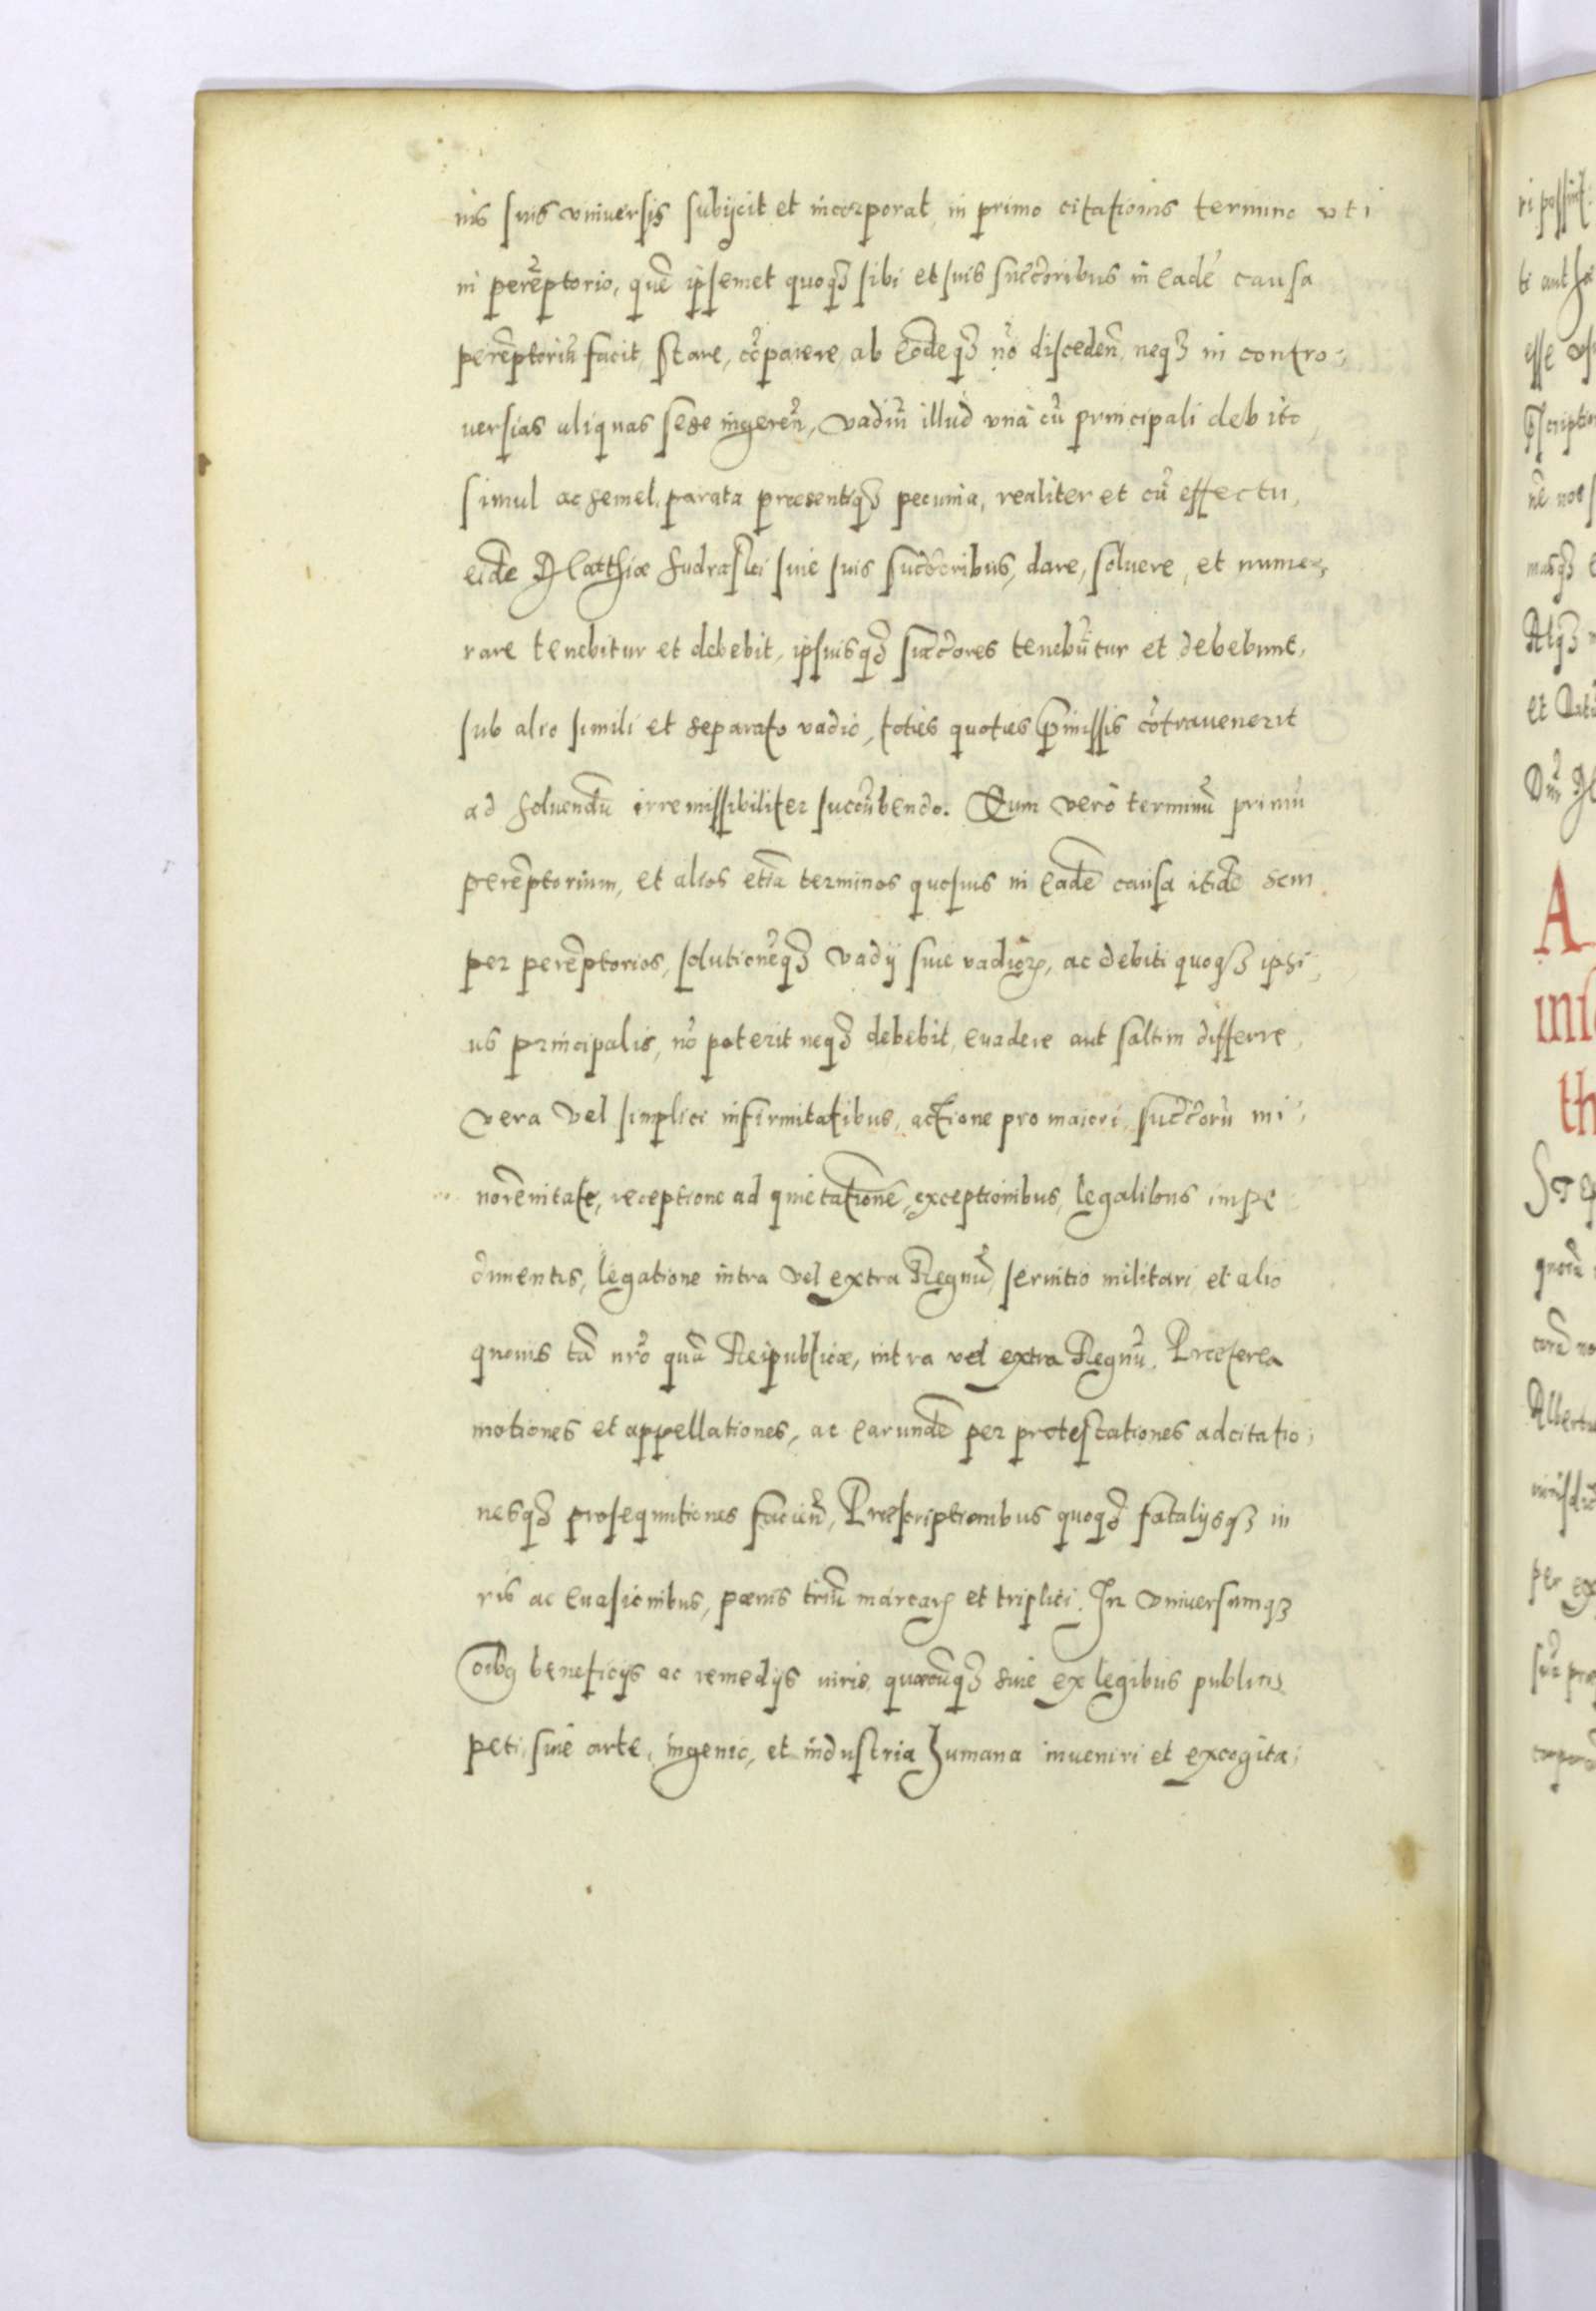 nis suis vniuersis subijcit et incorporat, in primo citationis termino vti
in perẽptorio, quẽ ipsemet quoq3 sibi et suis succ̃oribus in eadẽ causa
perẽptoriũ facit, stare, cõparere, ab eodẽq3 nõ disceden̄, neq3 in contro-
uersias aliquas sese ingeren̄, vadiũ illud vnà cũ principali debito,
simul ac semel, parata præsentiq3 pecunia, realiter et cũ effectu,
eidẽ Matthiæ siue suis succ̃oribus, dare, soluere, et nume-
rare tenebitur et debebit, ipsiusq3 succ̃ores tenebũtur et debebunt,
sub alio simili et separato vadio, toties quoties p̃missis cõtrauenerit
ad soluendũ irremissibiliter succũbendo. Quem verò terminũ primũ
perẽptorium, et alios etiã terminos quosuis in eadẽ causa itidẽ sem
per perẽptorios, solutionẽq3 vadij siue vadioꝝ, ac debiti quoq3 ipsi-
us principalis, nõ poterit neq3 debebit, euadere aut saltim differre,
vera vel simplici infirmitatibus, actione pro maiori, succ̃orũ mi-
norẽnitate, receptione ad quietationẽ, exceptionibus, legalibus impe
dimentis, legatione intra vel extra Regnũ, seruitio militari, et alio
quouis tã nr̃o quã Reipublicæ, intra vel extra Regnũ. Præterea
motiones et appellationes, ac earundẽ per protestationes adcitatio-
nesq3 prosequutiones facien̄, Præscriptionibus quoq3 fatalijsq3 iu
ris ac euasionibus, pœnis triũ marcaꝝ et triplici. In vniersumq3
oĩbꝯ beneficijs ac remedijs iuris, quæcũq3 siue ex legibus publicis
peti, siue arte, ingenio, et industria humana inueniri et excogita-